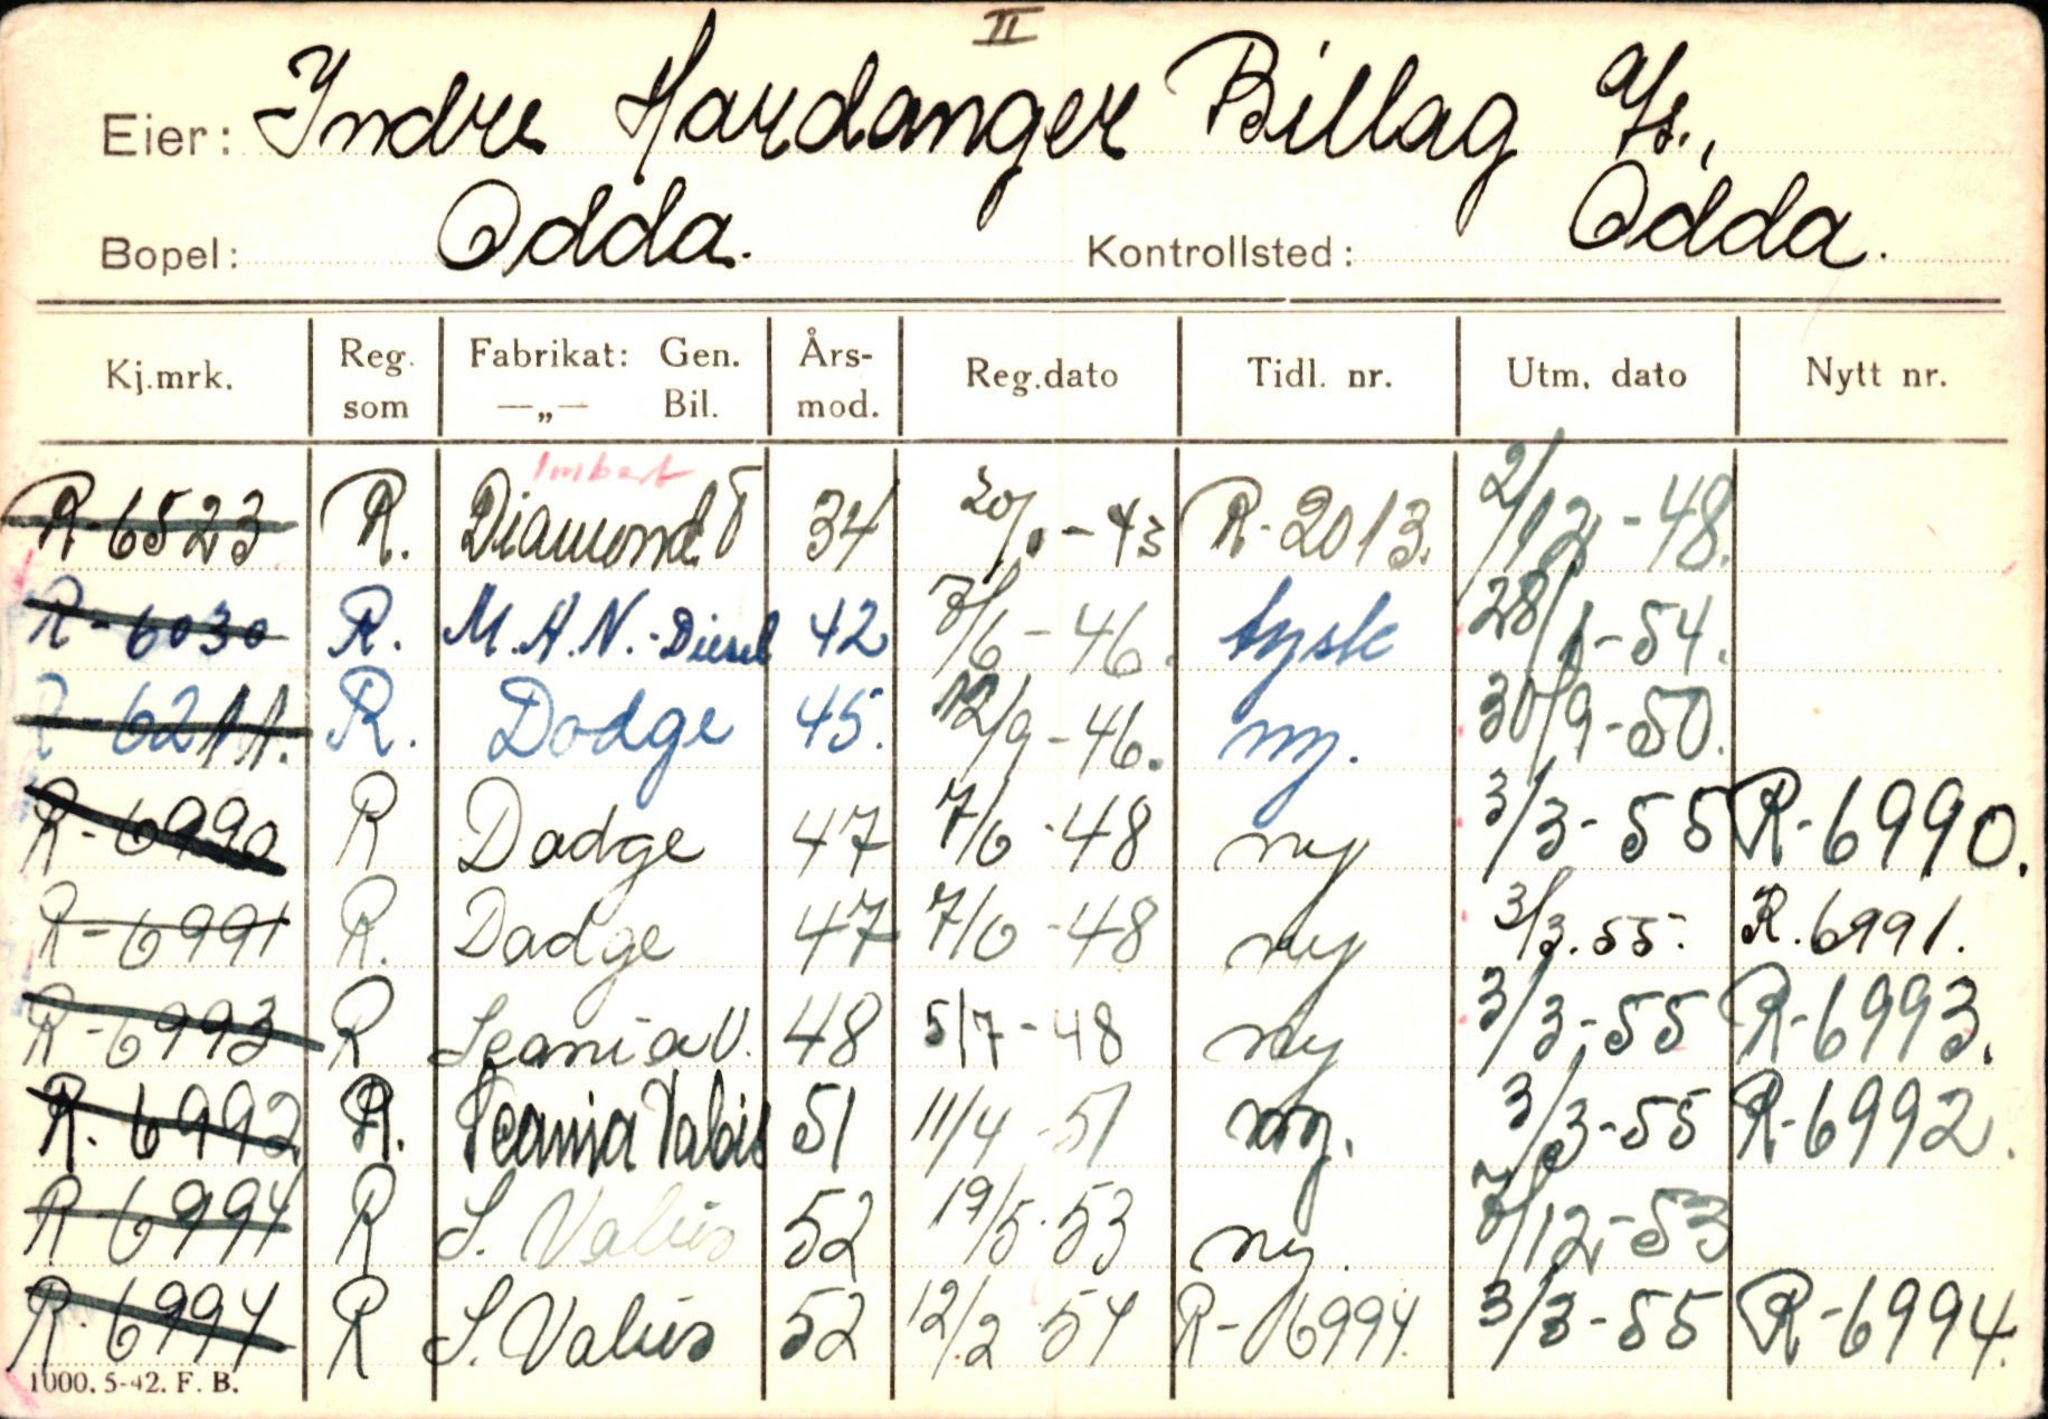 II
Eier: Indre Hardanger Billag A/s.,
Bopel: Odda. Kontrollsted: Odda.
Kj.mrk. Reg. som Fabrikat: Gen. —„— Bil. Års-mod. Reg.dato Tidl. nr. Utm. dato Nytt nr.
Imbert
R-6523 R. Diamond T 34 20/1-43 R-2013. 2/12-48.
R-6030 R. M.A.N.-Diesel 42 3/6-46. tysk 28/1-54.
R-6211. R. Dodge 45. 12/9-46. ny. 30/9-50.
R-6990 R Dodge 47 7/6-48 ny 3/3-55 R-6990.
R-6991 R. Dodge 47 7/6-48 ny 3/3.55. R.6991.
R-6993 R Scania V. 48 5/7-48 ny 3/3-55 R-6993.
R.6992 R. Scania Vabis 51 11/4-51 ny. 3/3-55 R-6992.
R-6994 R S. Vabis 52 19/5-53 ny. /12-53
R-6994 R S. Vabis 52 12/2 54 R-6994. 3/3-55 R-6994.
1000. 5-42. F. B.